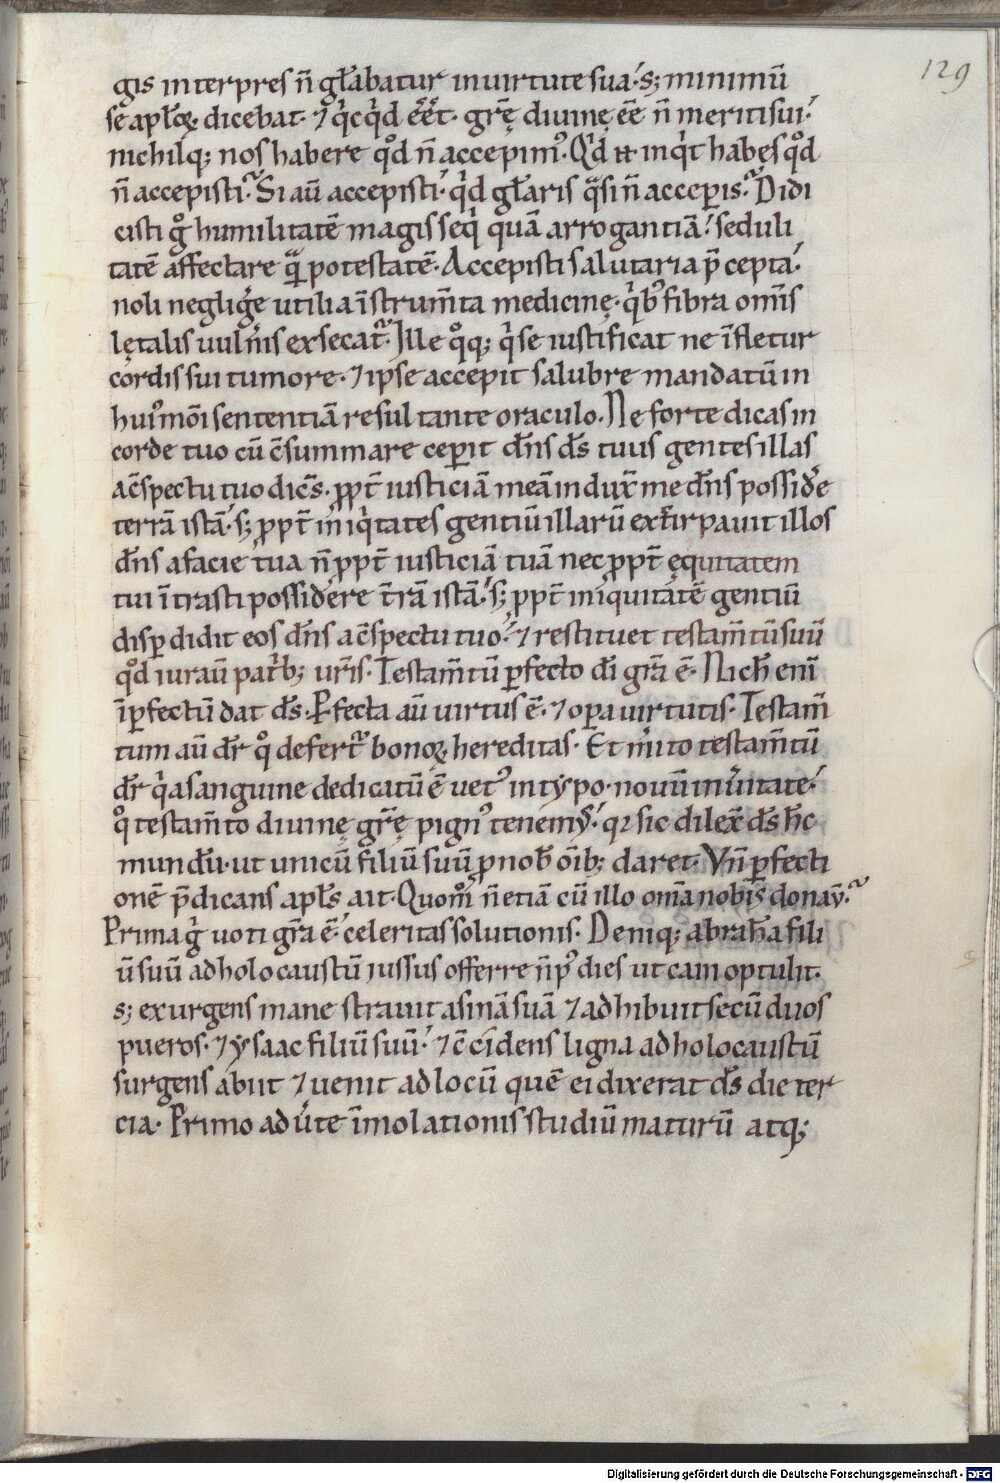 129
gis interpres n̄ głabatur in uirtute sua · s; minimū
se apłoꝝ dicebat · ⁊ qͥcqͥd ēēt · grę̄ diuinę ēē n̄ meriti sui ·
nichilq; nos habere qͦd n̄ accepimꝰ · Qͥd ҥ inqͥt habęs qͦd
n̄ accepisti? Si aū accepisti · qͥd głaris qͣsi n̄ acceperis? Didi
cisti gͦ humilitatē magis seqͥ quā arrogantiā · seduli
tatē affectare qͣ̄ potestatē · Accepisti salutaria p̄cepta ·
noli negligē utilia īstrum̄ta medicinę · qͥbꝰ fibra om̄is
lętalis uuln̄is exsecat᷑ · Ille qͦq; qͥ se iustificat ne īfletur
cordis sui tumore · ⁊ ipse accepit salubre mandatū in
huiꝰmōi sententiā resultante oraculo · Ne forte dicas in
corde tuo cū c̄summare ceperit dn̄s ds̄ tuus gentes illas
a c̄spectu tuo dicēs · ꝓpt̄ iusticiā meā indux̄ me dn̄s possidē
terrā istā · s; ꝓpt̄ iniqͥtates gentiū illarū extirpauit illos
dn̄s a facie tua n̄ ꝓpt̄ iusticiā tuā nec ꝓpt̄ ęquitatem
tui ītrasti possidere t̄rā istā · s; ꝓpt̄ iniquitatē gentiū
disꝑdidit eos dn̄s a c̄spectu tuo · ⁊ restituet testam̄tū suū
qͦd iurauī patͥb; ur̄is · Testam̄tū ꝑfecto dī gr̄a ē · Nich̄ enī
īꝑfectū dat ds̄ · Ꝑfecta aū uirtus ē · ⁊ opera uirtutis · Testam̄
tum aū dr̄ qͦ defert᷑ bonoꝝ hereditas · Et mͥito testam̄tū
dr̄ qͥa sanguine dedicatū ē uetꝰ in typo · nouū in ūitate ·
qͦ testam̄to diuinę grę̄ pignꝰ tenemꝰ · qꝛ sic dilex̄ ds̄ hc̄
mundū · ut unicū filiū suū ꝓ nob̄ ōib; daret · Vn̄ ꝑfecti
onē p̄dicans apłs ait · Quom̊ n̄ etiā cū illo om̄a nobis donaū?
Prima gͥ uoti gr̄a ē · celeritas solutionis · Deniq; abrahā fili
ū suū ad holocaustū iussus offerre n̄ pꝰ dies ut cain optulit ·
s; exurgens mane strauit asinā suā ⁊ adhibuit secū duos
pueros · ⁊ ysaac filiū suū · ⁊ c̄cīdens ligna ad holocaustū
surgens abiit ⁊ uenit ad locū quē ei dixerat ds̄ die ter
cia · Primo aduͥte īmolationis studiū maturū atq;
Digitalisierung gefördert durch die Deutsche Forschungsgemeinschaft - DFG